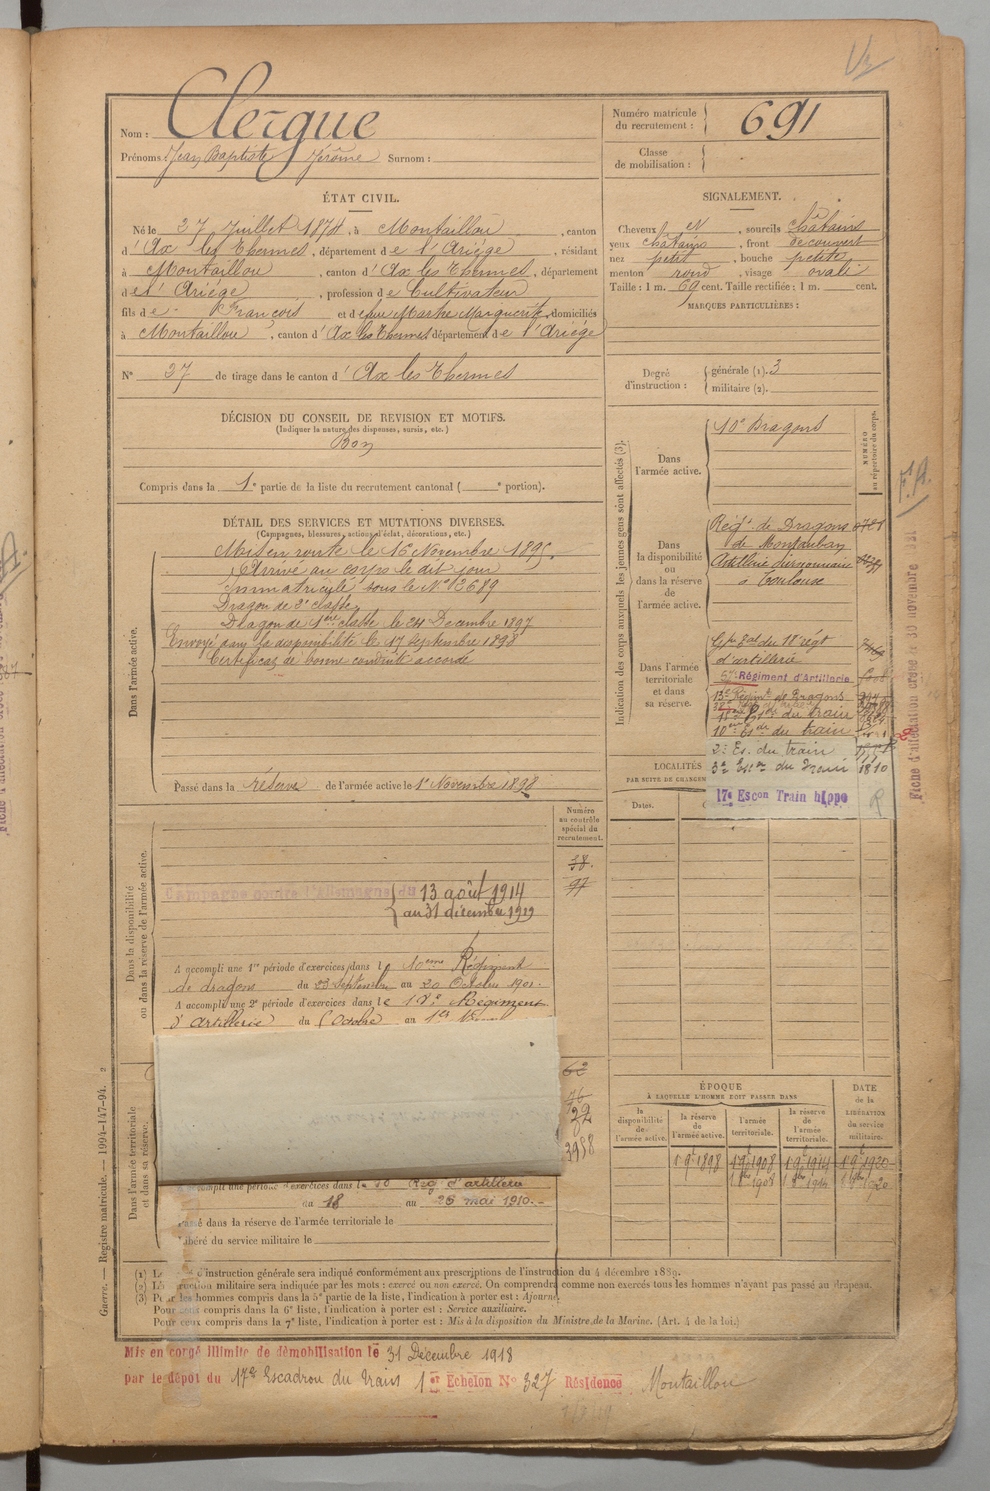 Nom : Clergue
Prénoms Jean Baptiste Jérôme Surnom :
Numéro matricule
du recrutement :
691
Classe
de mobilisation :
ÉTAT CIVIL.
Né le 27 Juillet 1874, à Montaillou, canton
d'Ax les Thermes, département de l'Ariége, résidant
à Montaillou, canton d'Ax les Thermes, département
de l'Ariége, profession de Cultivateur
fils de François et de feue Marthe Marguerite, domiciliés
à Montaillou, canton d'Ax les Thermes, département de l'Ariége
N° 27 de tirage dans le canton d'Ax les Thermes
SIGNALEMENT.
Cheveux et, sourcils châtains
yeux châtains, front découvert
nez petit, bouche petite
menton rond, visage ovale
Taille : 1 m. 69 cent. Taille rectifiée : 1 m. cent.
MARQUES PARTICULIÈRES :
Degré
d'instruction :
générale (1). 3
militaire (2).
DÉCISION DU CONSEIL DE REVISION ET MOTIFS.
(Indiquer la nature des dispenses, sursis, etc.)
Bon
Compris dans la 1e partie de la liste du recrutement cantonal ( e portion).
DÉTAIL DES SERVICES ET MUTATIONS DIVERSES.
(Campagnes, blessures, actions d'éclat, décorations, etc.)
Dans l'armée active.
Mis en route le 16 Novembre 1895.
Arrivé au corps le dit jour
Immatriculé sous le N°
Dragon de 2e classe
Dragon de 1ère classe le 24 Decembre 1897
Envoyé dans la disponibilité le 17 Septembre 1898
Certificat de bonne conduite accordé
Passé dans la réserve de l'armée active le 1er Novembre 1898
Indication des corps auxquels les jeunes gens sont affectés (3).
NUMÉRO
au répertoire du corps.
Dans
l'armée active.
10e Dragons
Dans
la disponibilité
ou
dans la réserve
de
l'armée active.
Régt. de Dragons
de Montauban
Artillerie divisionnaire
à Toulouse
Dans l'armée
territoriale
et dans
sa réserve.
Gpe Tal du 18e régt
d'artillerie
57e Régiment d'Artillerie
du train
10e du train
2e Es. du train
3e Esn du Train 1810
17e Escon Train hippo
R
F.A.
Fiche d'affectation créée le 30 novembre 1931
LOCALITÉS
PAR SUITE DE CHANGEM
Dates.
Dans la disponibilité
ou dans la réserve de l'armée active.
Numéro
au contrôle
spécial du
recrutement.
Campagne contre l'Allemagne du 13 août 1914
au 31 décembre 1919
A accompli une 1re période d'exercices dans le 10eme Régiment
de dragons du 23 Septembre au 20 Octobre 1901.
A accompli une 2e période d'exercices dans le 18e Régiment
d'artillerie du Octobre au 1er
Dans l'armée territoriale
et dans sa réserve.
62
76
22
3988
accompli une période d'exercices dans le 18 Reg. d'artillerie
du 18 au 26 mai 1910.
Passé dans la réserve de l'armée territoriale le
Libéré du service militaire le
ÉPOQUE
À LAQUELLE L'HOMME DOIT PASSER DANS
la
disponibilité
de
l'armée active.
la réserve
de
l'armée active.
l'armée
territoriale.
la réserve
de
l'armée
territoriale.
DATE
de la
LIBÉRATION
du service
militaire.
1 9e 1898
1 9e 1908
1 9e 1914
1 9e 1920
(1) Le d'instruction générale sera indiqué conformément aux prescriptions de l'instruction du 4 décembre 1889.
(2) L'instruction militaire sera indiquée par les mots : exercé ou non exercé. On comprendra comme non exercés tous les hommes n'ayant pas passé au drapeau.
(3) Pour les hommes compris dans la 5e partie de la liste, l'indication à porter est : Ajourné.
Pour ceux compris dans la 6e liste, l'indication à porter est : Service auxiliaire.
Pour ceux compris dans la 7e liste, l'indication à porter est : Mis à la disposition du Ministre de la Marine. (Art. 4 de la loi.)
Guerre. — Registre matricule. — 1994-147-94.
Mis en congé illimité de démobilisation le 31 Décembre 1918
par le dépôt du 17e Escadron du Train 1er Echelon N° 327 Résidence Montaillou